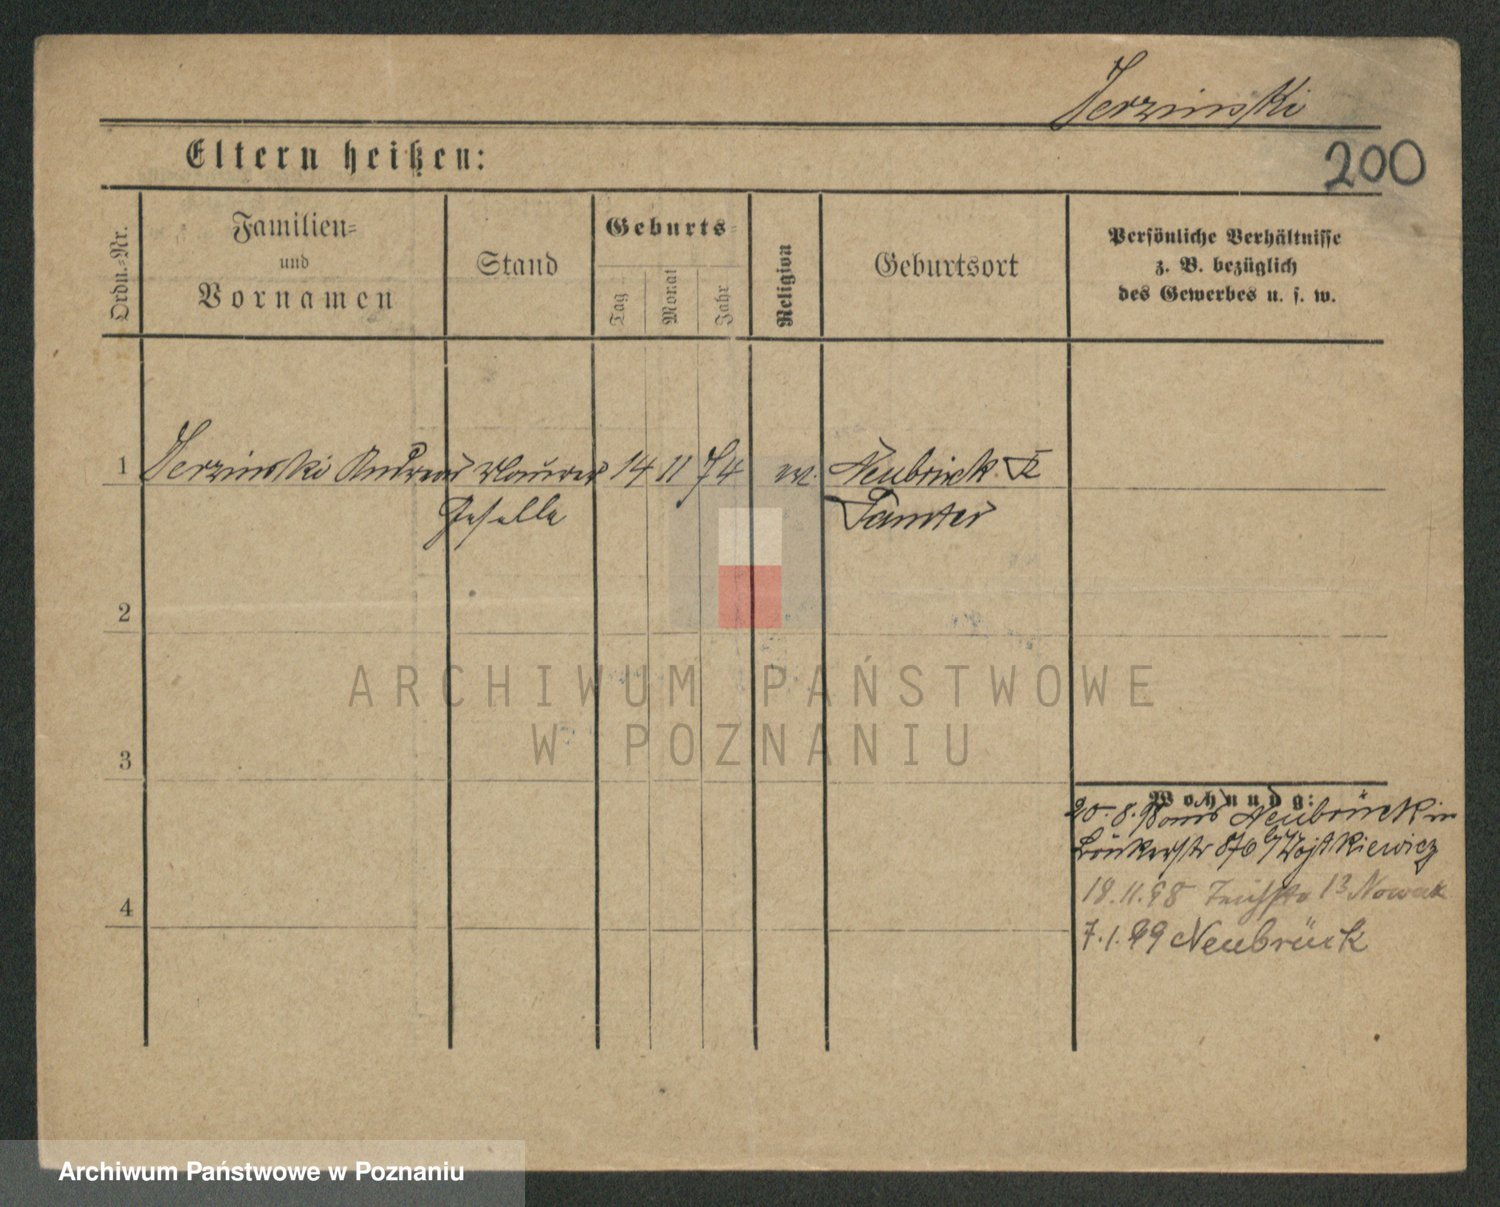 Jerzinski
200
Eltern heißen:
Ordn.-Nr.
Familien-
und
Vornamen
Stand
Geburts-
Tag
Monat
Jahr
Religion
Geburtsort
Persönliche Verhältnisse
z. B. bezüglich
des Gewerbes u. s. w.
1 Jerzinski Andreas Maurer 14 11 74 Neubrück Kr
Geselle Samter
2
ARCHIWUM PAŃSTWOWE
W POZNANIU
3
Wohnung:
20.8.98 aus Neubrück in
876 b/ Wojtkiewicz
18.11.98 13 Nowak
4
7.1.99 Neubrück
Archiwum Państwowe w Poznaniu